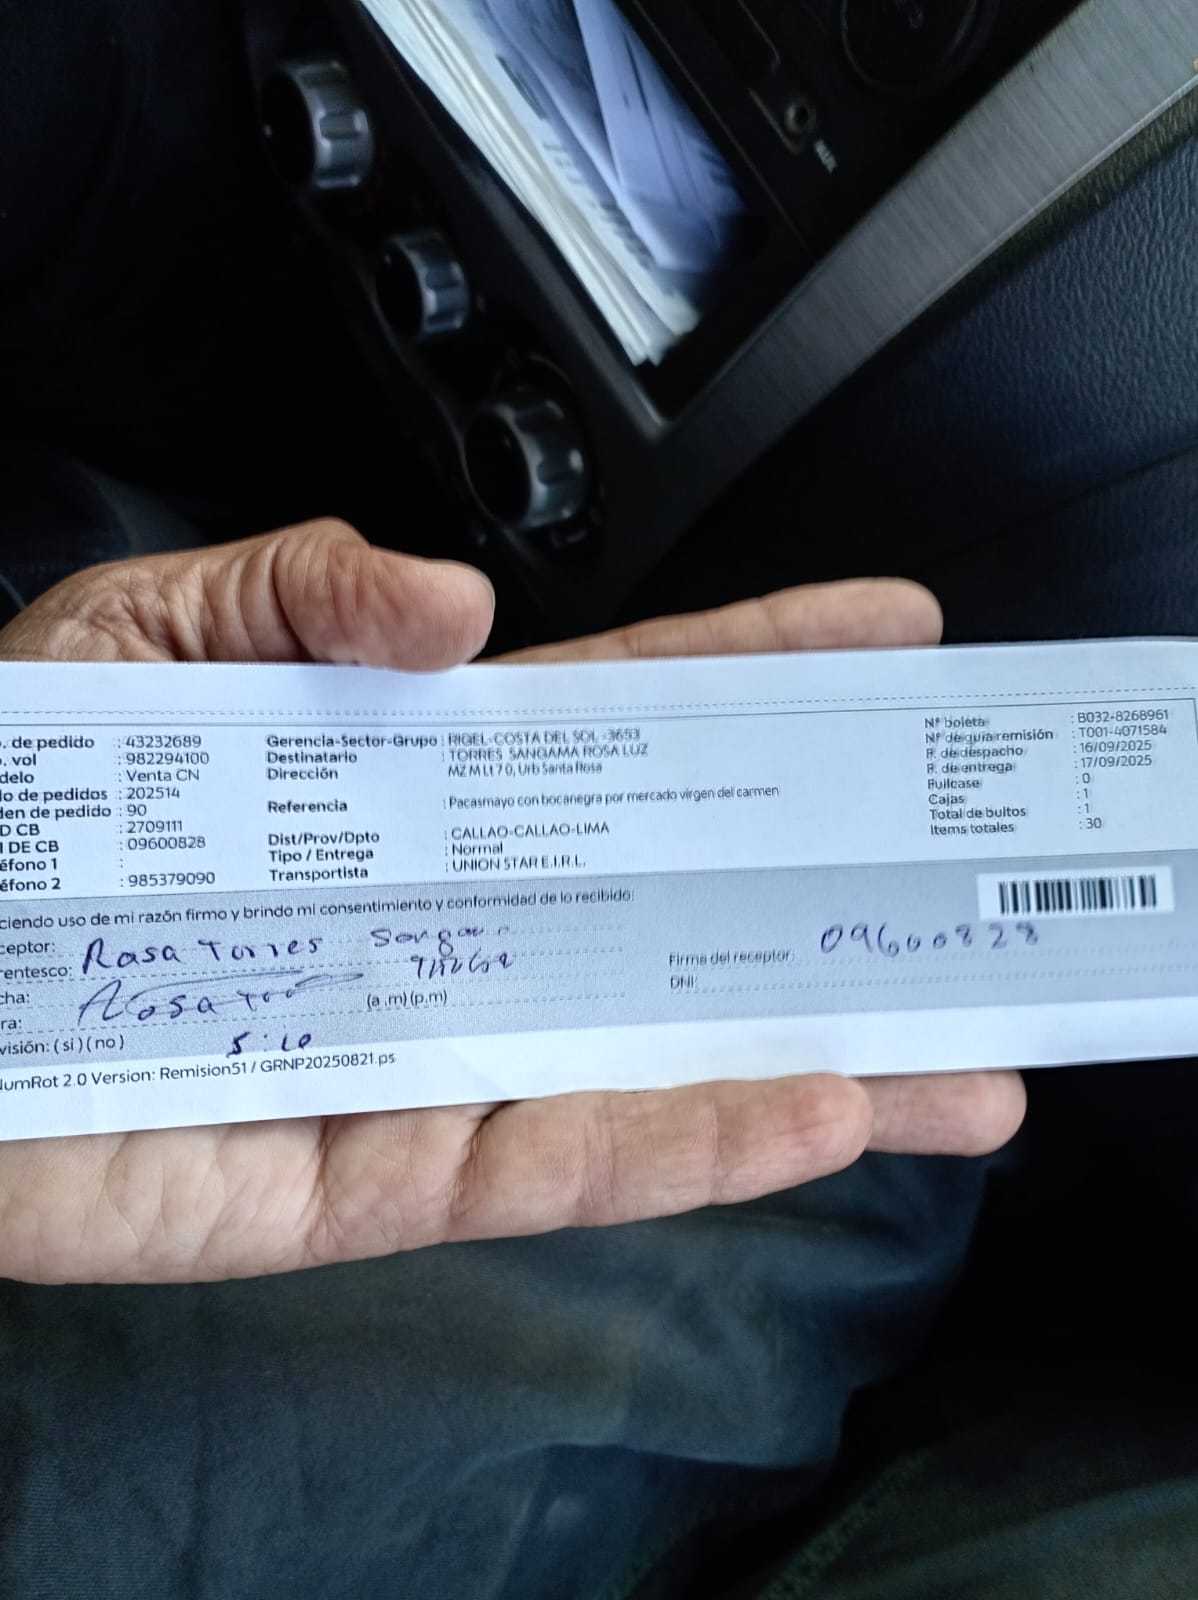 . de pedido : 43232689
. vol : 982294100
delo : Venta CN
lo de pedidos : 202514
den de pedido : 90
D CB : 2709111
I DE CB : 09600828
éfono 1 :
éfono 2 : 985379090
Gerencia-Sector-Grupo : RIGEL-COSTA DEL SOL -3653
Destinatario : TORRES SANGAMA ROSA LUZ
Dirección MZ M Lt 7 0, Urb Santa Rosa
Referencia : Pacasmayo con bocanegra por mercado virgen del carmen
Dist/Prov/Dpto : CALLAO-CALLAO-LIMA
Tipo / Entrega : Normal
Transportista : UNION STAR E.I.R.L.
Nº boleta : B032-8268961
Nº de guía remisión : T001-4071584
F. de despacho : 16/09/2025
F. de entrega : 17/09/2025
Fullcase : 0
Cajas : 1
Total de bultos : 1
Items totales : 30
ciendo uso de mi razón firmo y brindo mi consentimiento y conformidad de lo recibido:
ceptor: Rosa Torres
rentesco:
cha: Rosa
ra: (a .m) (p.m)
visión: ( si ) ( no ) 5:10
Firma del receptor: 09600828
DNI:
NumRot 2.0 Version: Remision51 / GRNP20250821.ps
AUX